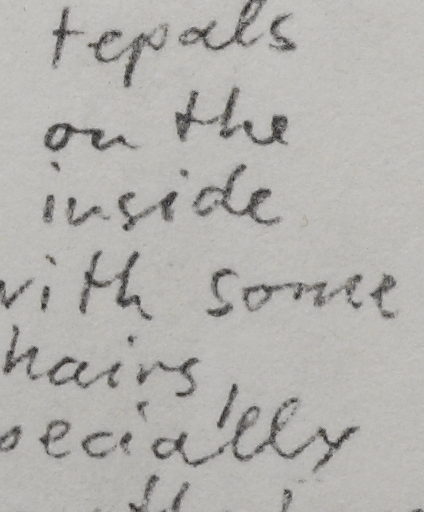 tepals
on the
inside
with some
hairs,
pecially